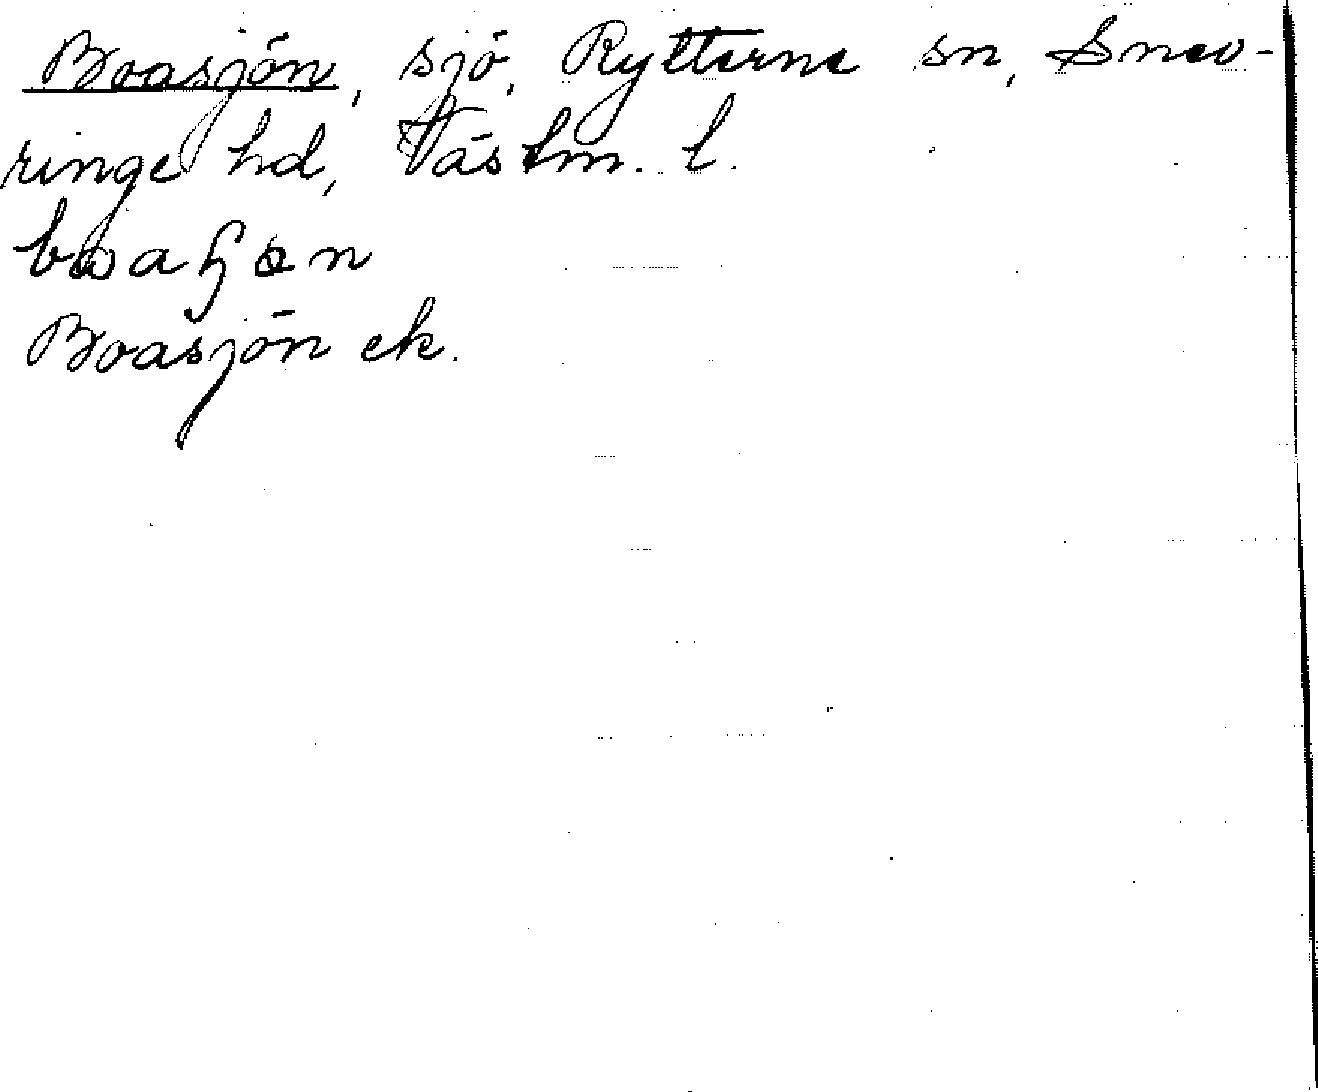 Boasjön, sjö, Rytterne sn, Snev-
ringe hd, Västm. l.
Boasjön ek.